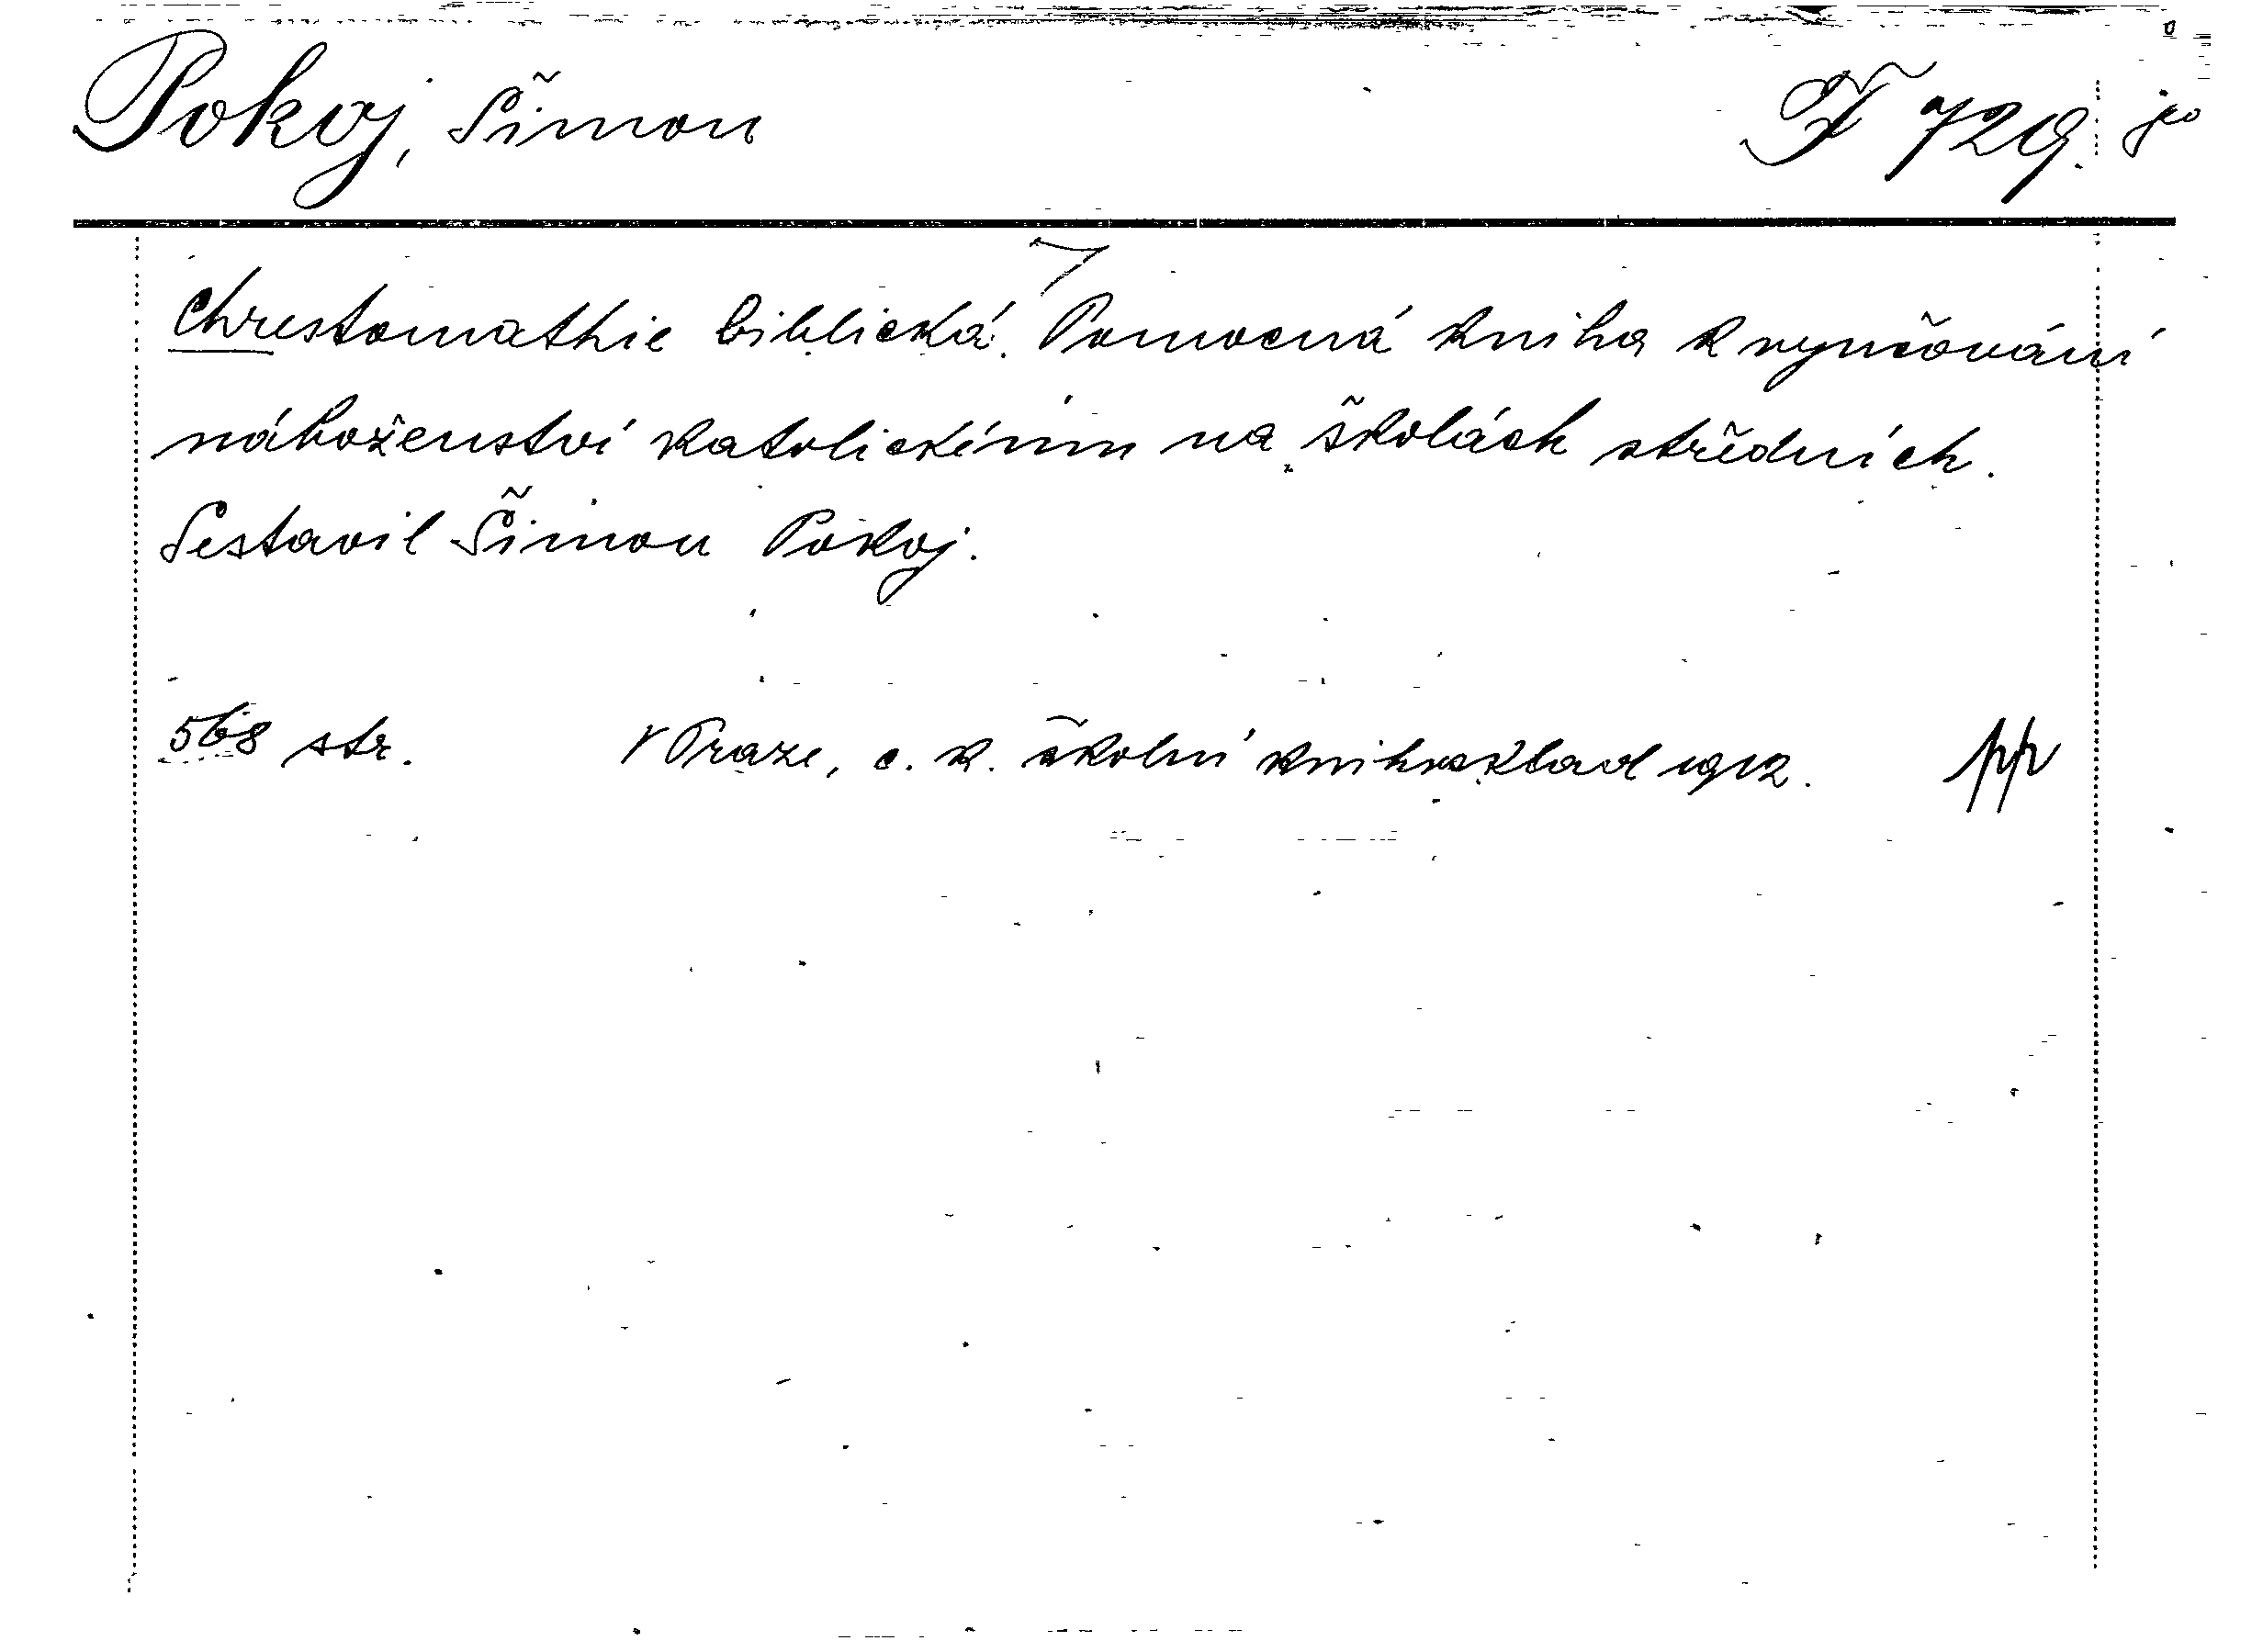 Pokoj, Šimon F 729. jo
Chrestomathie biblická. Pomocná kniha k vyučování
náboženství katolickému na školách středních.
Sestavil Šimon Pokoj.
568 str. V Praze, c. k. školní knihosklad 1912. pp